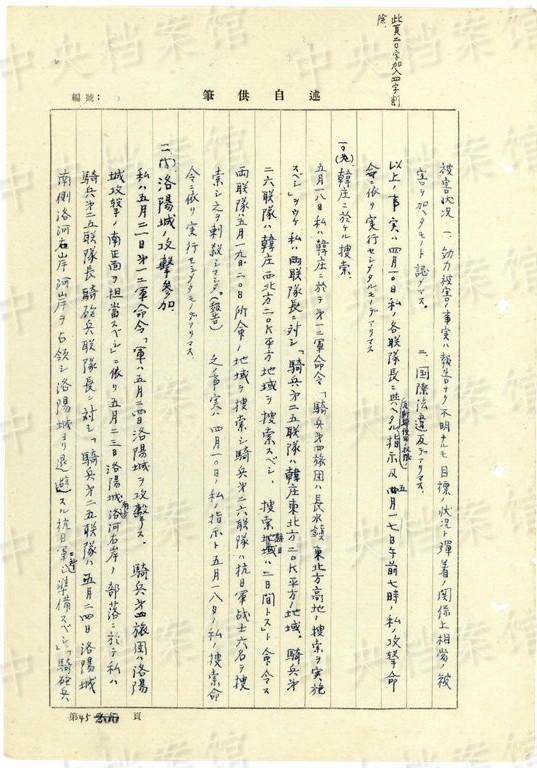 此頁二〇字加入四字削
除
編號：
筆供自述
被害状况　一、効力被害ノ事実ハ報告ナク不明ナルモ目標ノ状況ト弾着ノ関係上相当ノ被
害ヲ加ヘタモノト認メマス。　二、国際法違反デアリマス。
以上ノ事実ハ四月一〇日私ノ各联隊長ニ與ヘタル指示及五月一七日午前七時ノ私ノ攻撃命
令ニ依リ実行セシメタルモノデアリマス
韓庄ニ於ケル捜索。
五月一八日私ハ韓庄ニ於テ第一二軍命令「騎兵第四旅団ハ長水鎮東北方高地ノ捜索ヲ実施
スベシ」ヲウケ私ハ両联隊長ニ対シ「騎兵第二五联隊ハ韓庄東北方二〇K平方ノ地域、騎兵第
二六联隊ハ韓庄西北方二〇K平方地域ヲ捜索スベシ、捜索期日ハ二日間トス」ト命令ス
両联隊ハ五月一九、二〇日所命ノ地域ヲ捜索シ騎兵第二六联隊ハ抗日軍战士六名ヲ捜
索シ之ヲ刺殺シマシタ。(報告)　之ノ事実ハ四月一〇日ノ私ノ指示ト五月一八日ノ私ノ捜索命
令ニ依リ実行セシメタモノデアリマス。
洛陽城ノ攻撃参加
私ハ五月二一日第一二軍命令「軍ハ五月二四日洛陽城ヲ攻撃ス。騎兵第四旅団ハ洛陽
城攻撃ノ南正面ヲ担当スベシ」ニ依リ五月二三日洛陽城南洛河右岸ノ部落ニ於テ私ハ
騎兵第二五联隊長騎砲兵联隊長ニ対シ「騎兵第二五联隊ハ五月二四日洛陽城
南側洛河右岸河岸ヲ占領シ洛陽城ヨリ退避スル抗日軍ノ準備スベシ」「騎砲兵
第45頁